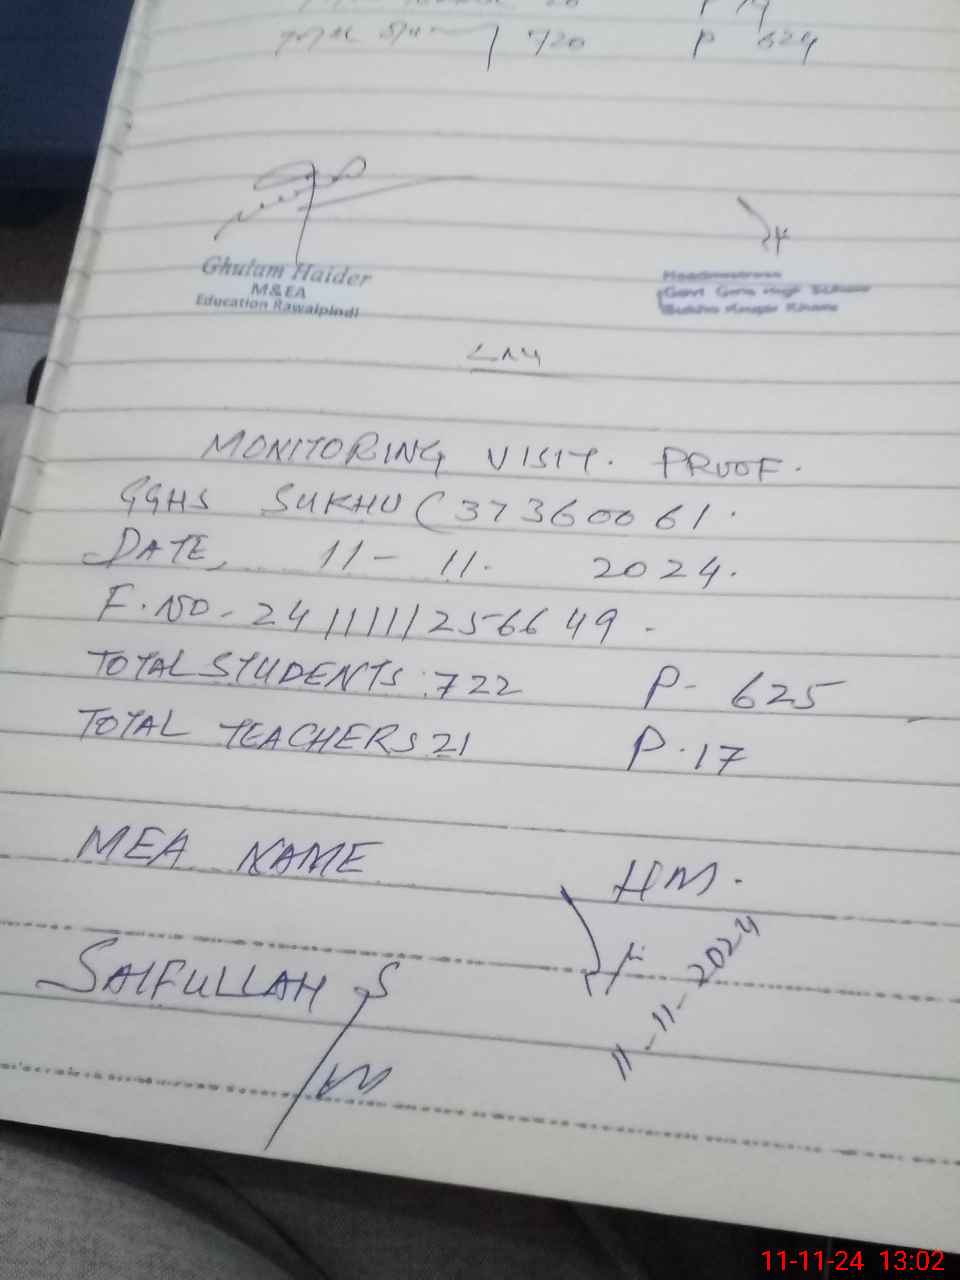 720 P 624
Ghulam Haider
M&EA
Education Rawalpindi
Headmistress
Govt Girls High
MONITORING VISIT. PROOF.
GGHS SUKHU (37360061.
DATE, 11- 11. 2024.
F.NO- 2411111256649.
TOTAL STUDENTS:722 P- 625
TOTAL TEACHERS 21 P.17
MEA NAME HM.
11-11-2024
SAIFULLAH
11-11-24 13:02